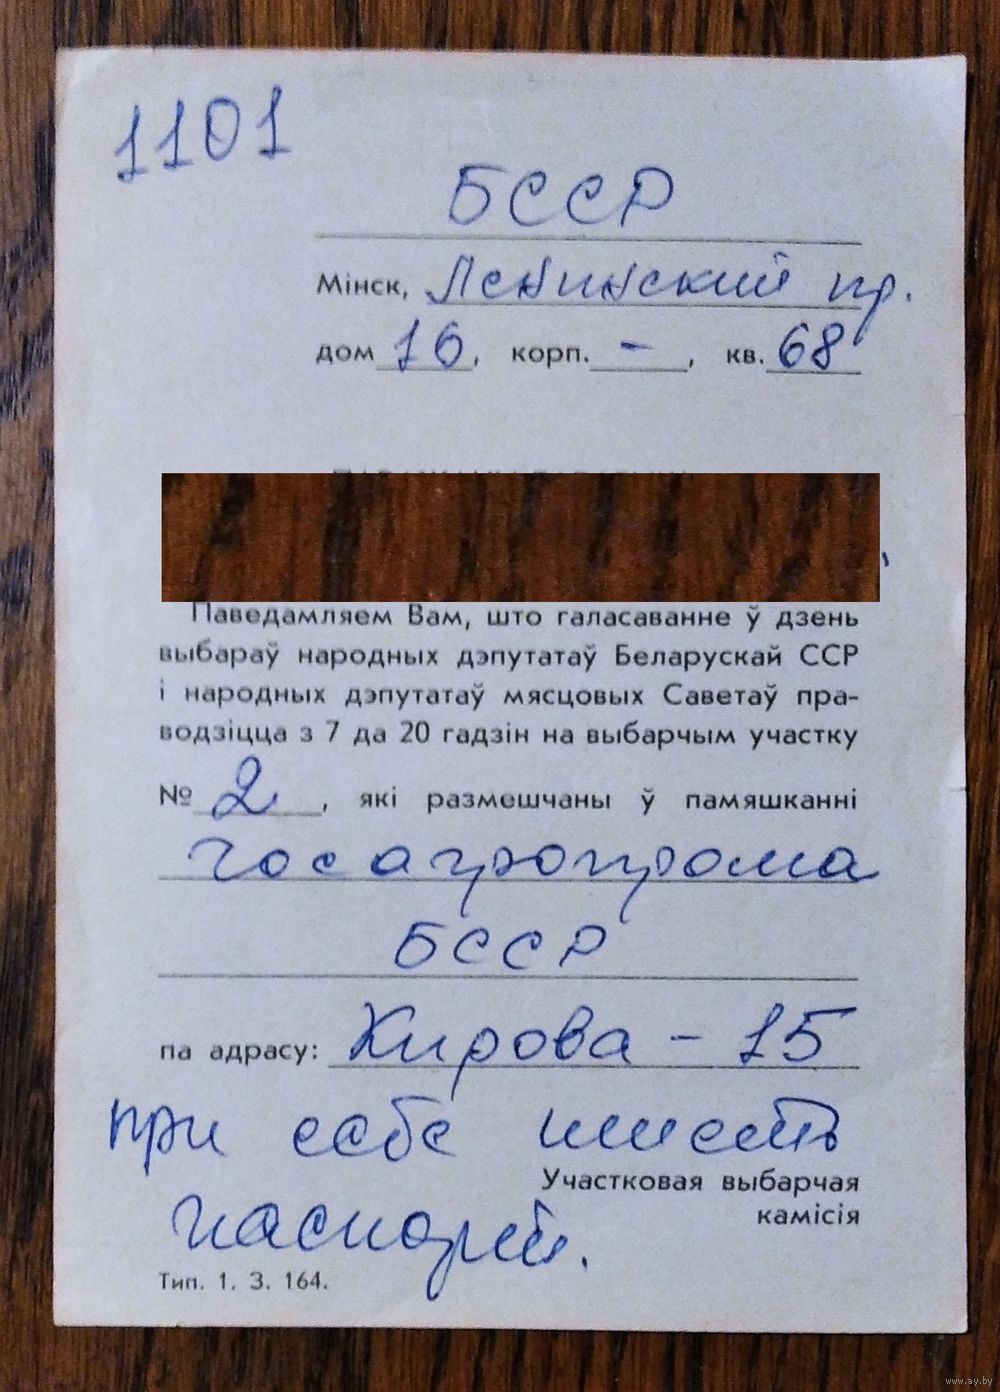 1101
БССР
Мінск, Ленинский пр.
дом 16, корп. -, кв. 68
Паведамляем Вам, што галасаванне ў дзень
выбараў народных дэпутатаў Беларускай ССР
і народных дэпутатаў мясцовых Саветаў пра-
водзіцца з 7 да 20 гадзін на выбарчым участку
№ 2, які размешчаны ў памяшканні
госагропрома
БССР
па адрасу: Кирова - 15
при себе иметь
Участковая выбарчая
камісія
паспорт.
Тип. 1. З. 164.
www.ay.by